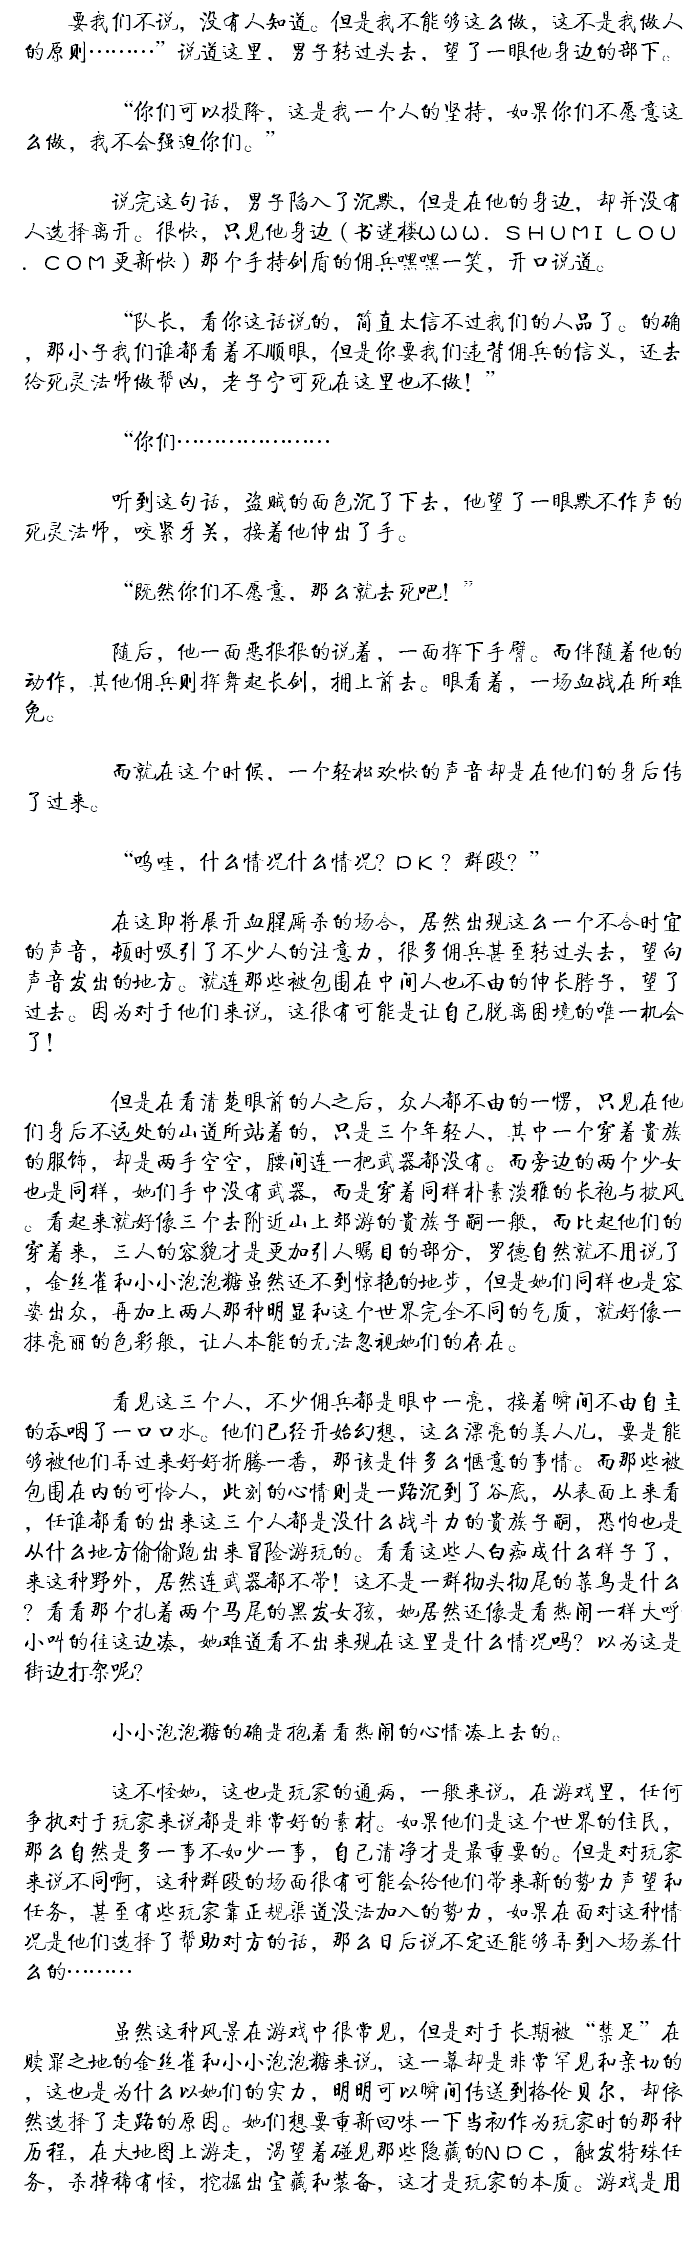 要我们不说，没有人知道。但是我不能够这么做，这不是我做人
的原则………”说道这里，男子转过头去，望了一眼他身边的部下。
“你们可以投降，这是我一个人的坚持，如果你们不愿意这
么做，我不会强迫你们。”
说完这句话，男子陷入了沉默，但是在他的身边，却并没有
人选择离开。很快，只见他身边（书迷楼ＷＷＷ．ＳＨＵＭＩＬＯＵ
．ＣＯＭ更新快）那个手持剑盾的佣兵嘿嘿一笑，开口说道。
“队长，看你这话说的，简直太信不过我们的人品了。的确
，那小子我们谁都看着不顺眼，但是你要我们违背佣兵的信义，还去
给死灵法师做帮凶，老子宁可死在这里也不做！”
“你们…………………
听到这句话，盗贼的面色沉了下去，他望了一眼默不作声的
死灵法师，咬紧牙关，接着他伸出了手。
“既然你们不愿意，那么就去死吧！”
随后，他一面恶狠狠的说着，一面挥下手臂。而伴随着他的
动作，其他佣兵则挥舞起长剑，拥上前去。眼看着，一场血战在所难
免。
而就在这个时候，一个轻松欢快的声音却是在他们的身后传
了过来。
“呜哇，什么情况什么情况？ＰＫ？群殴？”
在这即将展开血腥厮杀的场合，居然出现这么一个不合时宜
的声音，顿时吸引了不少人的注意力，很多佣兵甚至转过头去，望向
声音发出的地方。就连那些被包围在中间人也不由的伸长脖子，望了
过去。因为对于他们来说，这很有可能是让自己脱离困境的唯一机会
了！
但是在看清楚眼前的人之后，众人都不由的一愣，只见在他
们身后不远处的山道所站着的，只是三个年轻人，其中一个穿着贵族
的服饰，却是两手空空，腰间连一把武器都没有。而旁边的两个少女
也是同样，她们手中没有武器，而是穿着同样朴素淡雅的长袍与披风
。看起来就好像三个去附近山上郊游的贵族子嗣一般，而比起他们的
穿着来，三人的容貌才是更加引人瞩目的部分，罗德自然就不用说了
，金丝雀和小小泡泡糖虽然还不到惊艳的地步，但是她们同样也是容
姿出众，再加上两人那种明显和这个世界完全不同的气质，就好像一
抹亮丽的色彩般，让人本能的无法忽视她们的存在。
看见这三个人，不少佣兵都是眼中一亮，接着瞬间不由自主
的吞咽了一口口水。他们已经开始幻想，这么漂亮的美人儿，要是能
够被他们弄过来好好折腾一番，那该是件多么惬意的事情。而那些被
包围在内的可怜人，此刻的心情则是一路沉到了谷底，从表面上来看
，任谁都看的出来这三个人都是没什么战斗力的贵族子嗣，恐怕也是
从什么地方偷偷跑出来冒险游玩的。看看这些人白痴成什么样子了，
来这种野外，居然连武器都不带！这不是一群彻头彻尾的菜鸟是什么
？看看那个扎着两个马尾的黑发女孩，她居然还像是看热闹一样大呼
小叫的往这边凑，她难道看不出来现在这里是什么情况吗？以为这是
街边打架呢？
小小泡泡糖的确是抱着看热闹的心情凑上去的。
这不怪她，这也是玩家的通病，一般来说，在游戏里，任何
争执对于玩家来说都是非常好的素材。如果他们是这个世界的住民，
那么自然是多一事不如少一事，自己清净才是最重要的。但是对玩家
来说不同啊，这种群殴的场面很有可能会给他们带来新的势力声望和
任务，甚至有些玩家靠正规渠道没法加入的势力，如果在面对这种情
况是他们选择了帮助对方的话，那么日后说不定还能够弄到入场券什
么的………
虽然这种风景在游戏中很常见，但是对于长期被“禁足”在
赎罪之地的金丝雀和小小泡泡糖来说，这一幕却是非常罕见和亲切的
，这也是为什么以她们的实力，明明可以瞬间传送到格伦贝尔，却依
然选择了走路的原因。她们想要重新回味一下当初作为玩家时的那种
历程，在大地图上游走，渴望着碰见那些隐藏的ＮＰＣ，触发特殊任
务，杀掉稀有怪，挖掘出宝藏和装备，这才是玩家的本质。游戏是用